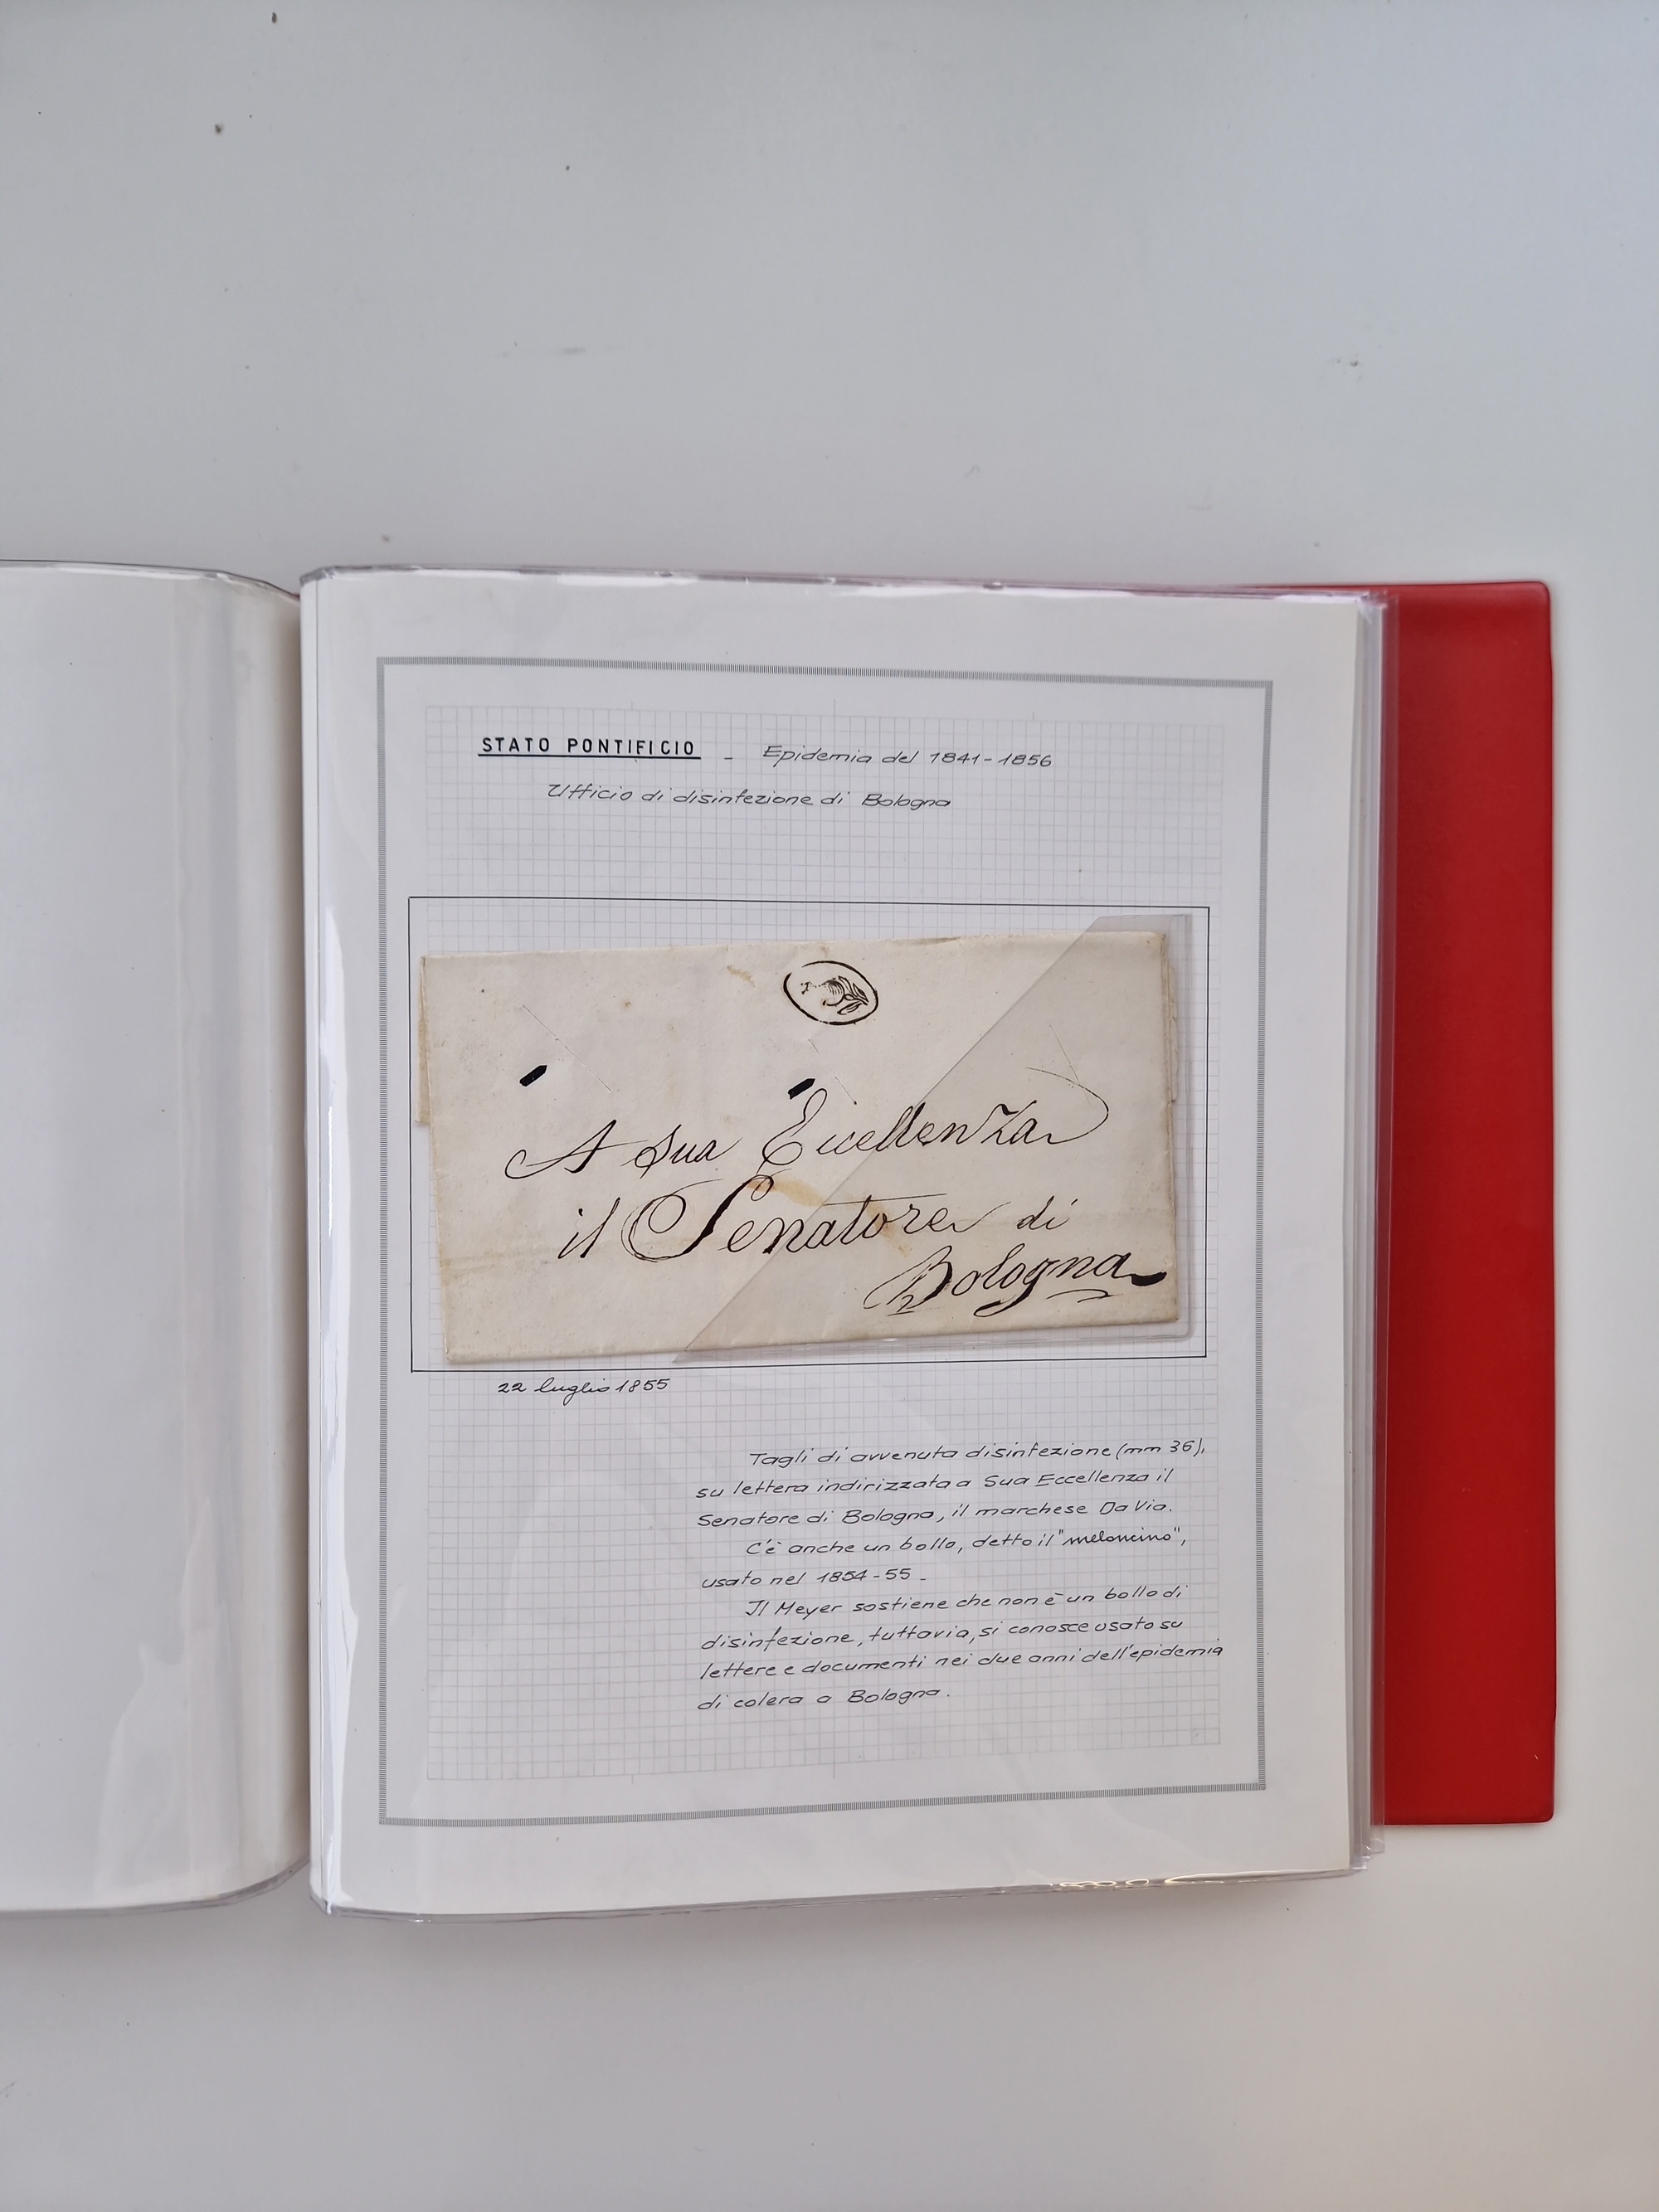 STATO PONTIFICIO - Epidemia del 1841-1856
Ufficio di disinfezione di Bologna
A sua Eccellenza
il Senatore di
Bologna
22 luglio 1855
Tagli di avvenuta disinfezione (mm 36),
su lettera indirizzata a Sua Eccellenza il
Senatore di Bologna, il marchese Da Via.
C'è anche un bollo, detto il "meloncino",
usato nel 1854-55 -
Il Meyer sostiene che non è un bollo di
disinfezione, tuttavia, si conosce usato su
lettere e documenti nei due anni dell'epidemia
di colera a Bologna.